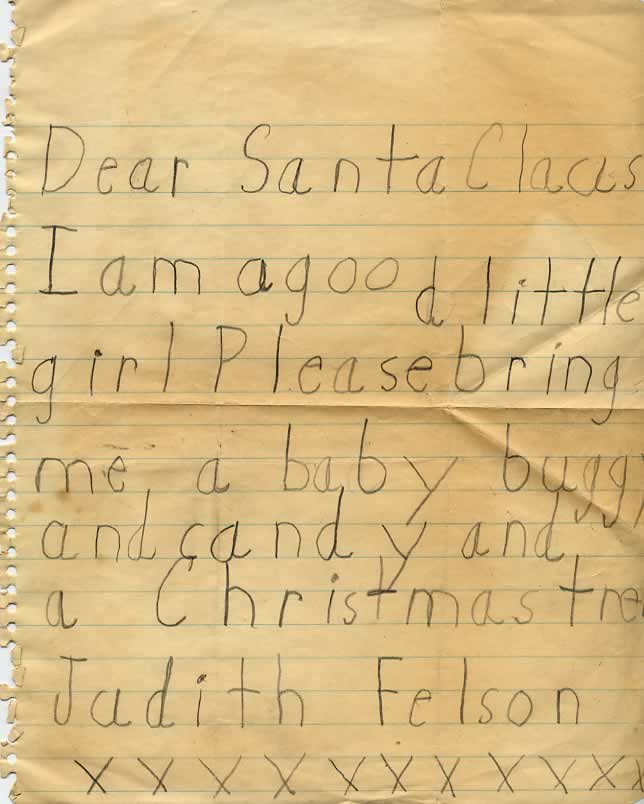 Dear Santa Claus
I am a good little
girl Please bring
me a baby buggy
and candy and
a Christmas tree
Judith Felson
X X X X X X X X X X X